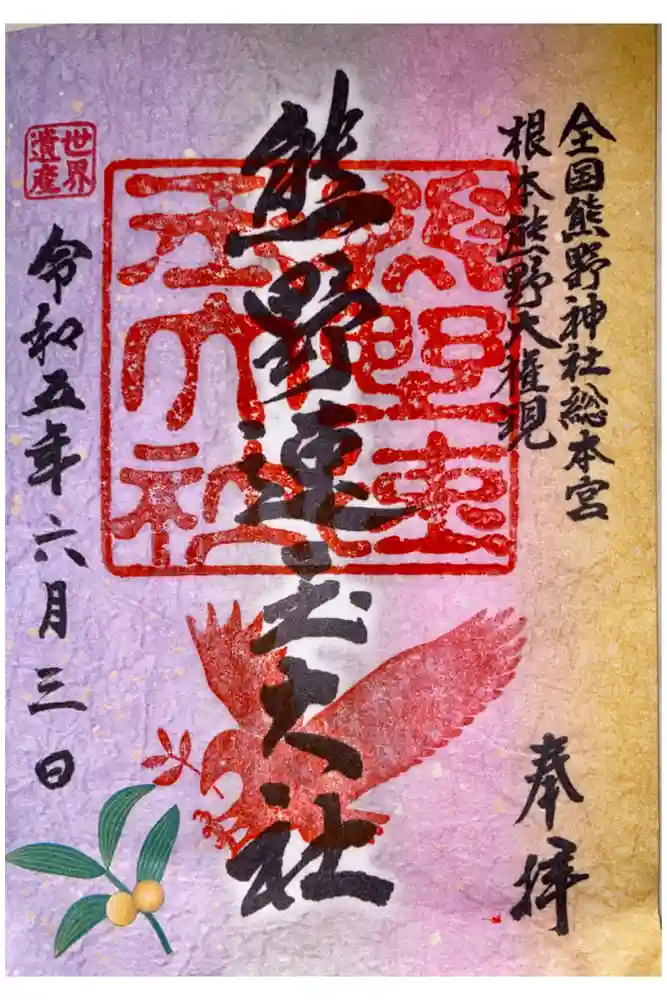 全国熊野神社総本宮
根本熊野大権現
奉拝
熊野速玉大社
世界
遺産
令和五年六月三日